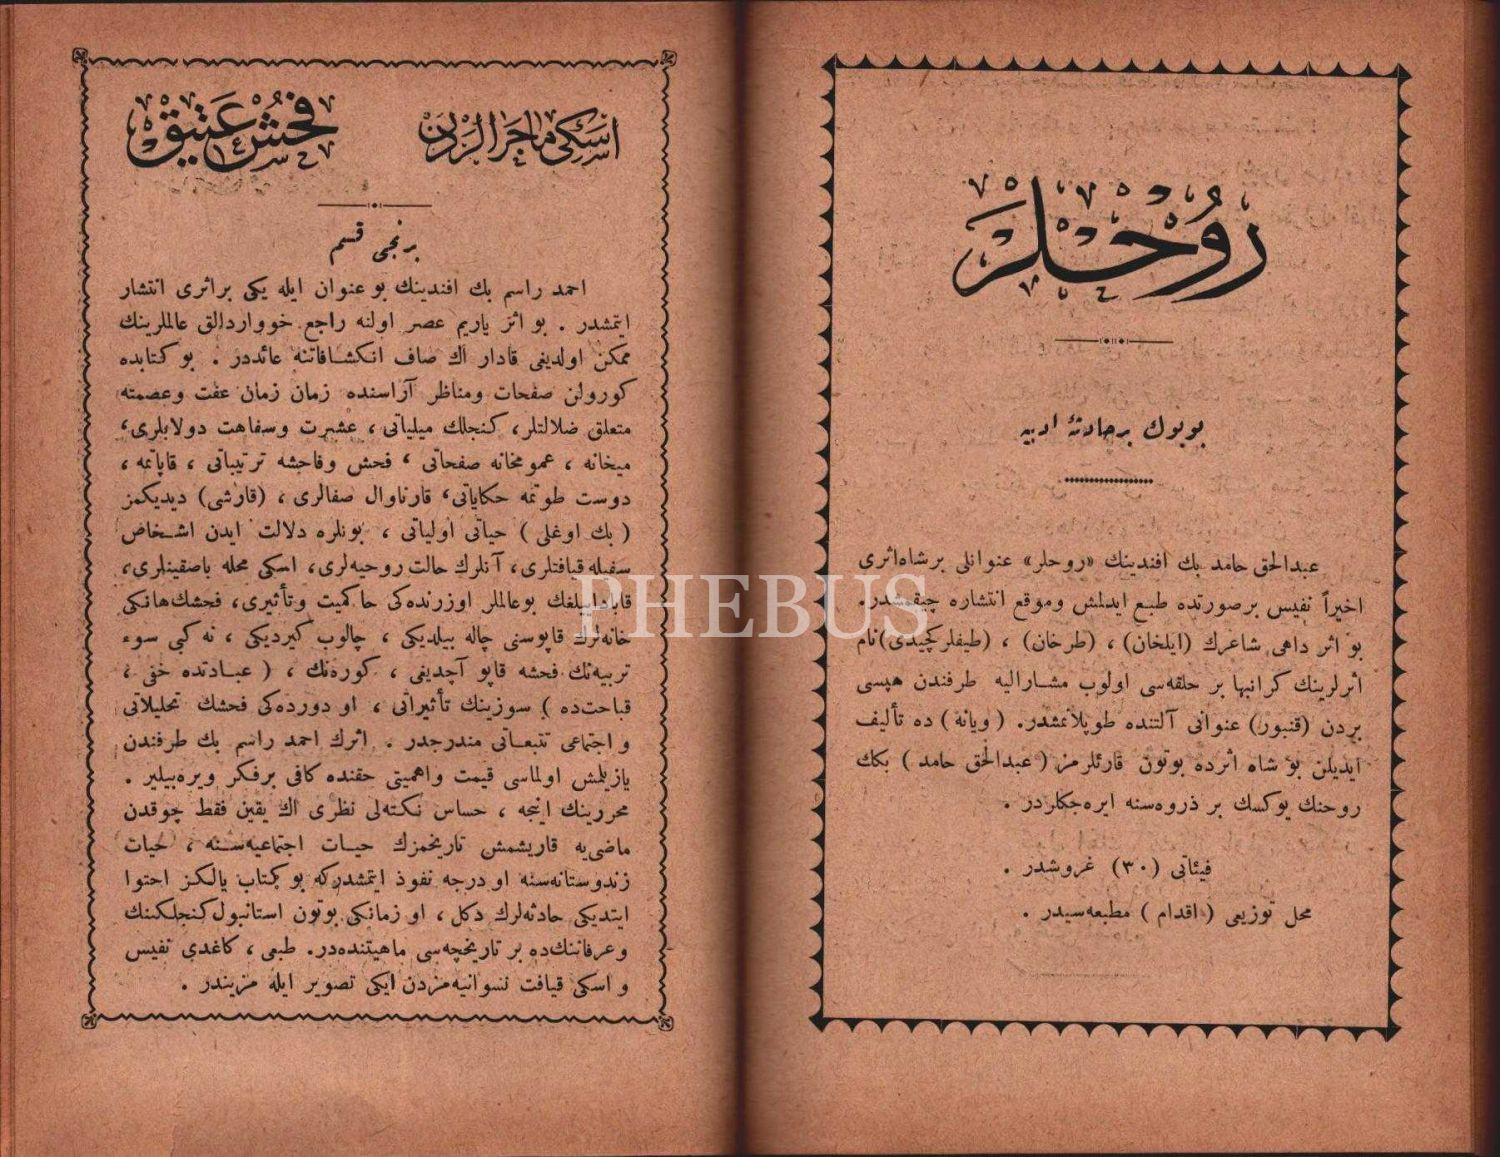 روحلر
بويوك بر حادثهٔ ادبيه
عبدالحق حامد بك افندينك «روحلر» عنوانلى بر شاه اثرى
اخيراً نفيس بر صورتده طبع ايدلمش وموقع انتشاره چيقمشدر.
بو اثر داهى شاعرك (ايلخان) ، (طرخان) ، (طيفلر كچيدى) نام
اثرلرينك كرانبها بر حلقه‌سى اولوب مشاراليه طرفندن هپسى
بردن (قنبور) عنوانى آلتنده طوپلانمشدر. (ويانه) ده تأليف
ايديلن بو شاه اثرده بوتون قارئلرمز (عبدالحق حامد) بكك
روحنك يوكسك بر ذروه‌سنه ايره‌جكلردر .
فيئاتى (٣٠) غروشدر .
محل توزيعى (اقدام) مطبعه‌سيدر .
اسكى ماجرالردن
فحش عتيق
برنجى قسم
احمد راسم بك افندينك بو عنوان ايله يكى بر اثرى انتشار
ايتمشدر . بو اثر ياريم عصر اولنه راجع خوواردالق عالملرينك
ممكن اولديغى قادار اك صاف انكشافاتنه عائددر . بو كتابده
كورولن صفحات ومناظر آراسنده زمان زمان عفت وعصمته
متعلق ضلالتلر، كنجلك ميلياتى ، عشرت وسفاهت دولابلرى،
ميخانه ، عمومخانه صفحاتى ، فحش وفاحشه ترتيباتى ، قاپاتمه ،
دوست طوتمه حكاياتى، قارناوال صفالرى ، (قارشى) ديديكمز
(بك اوغلى) حياتى اولياتى ، بونلره دلالت ايدن اشخاص
سفيله قيافتلرى، آنلرك حالت روحيه‌لرى، اسكى محله باصقينلرى،
قابادايىلغك بو عالملر اوزرنده‌كى حاكميت وتأثيرى، فحشك هانكى
خانه‌لرك قاپوسنى چاله بيلديكى ، چالوب كيرديكى ، نه كبى سوء
تربيه‌نك فحشه قاپو آچديغى ، كوره‌نك ، (عبادتده خفى ،
قباحت‌ده) سوزينك تأثيراتى ، او دورده‌كى فحشك تحليلاتى
و اجتماعى تتبعاتى مندرجدر . اثرك احمد راسم بك طرفندن
يازيلمش اولماسى قيمت واهميتى حقنده كافى بر فكر ويره‌بيلير .
محررينك اينجه ، حساس نكته‌لى نظرى اك يقين فقط چوقدن
ماضى‌يه قاريشمش تاريخمزك حيات اجتماعيه‌سنه ، حيات
زندوستانه‌سنه او درجه نفوذ ايتمشدركه بو كتاب يالكز احتوا
ايتديكى حادثه‌لرك دكل ، او زمانكى بوتون استانبول كنجلكىنك
و عرفاننك‌ده بر تاريخچه‌سى ماهيتنده‌در. طبعى ، كاغدى نفيس
و اسكى قيافت نسوانيه‌مزدن ايكى تصوير ايله مزيندر .
PHEBUS